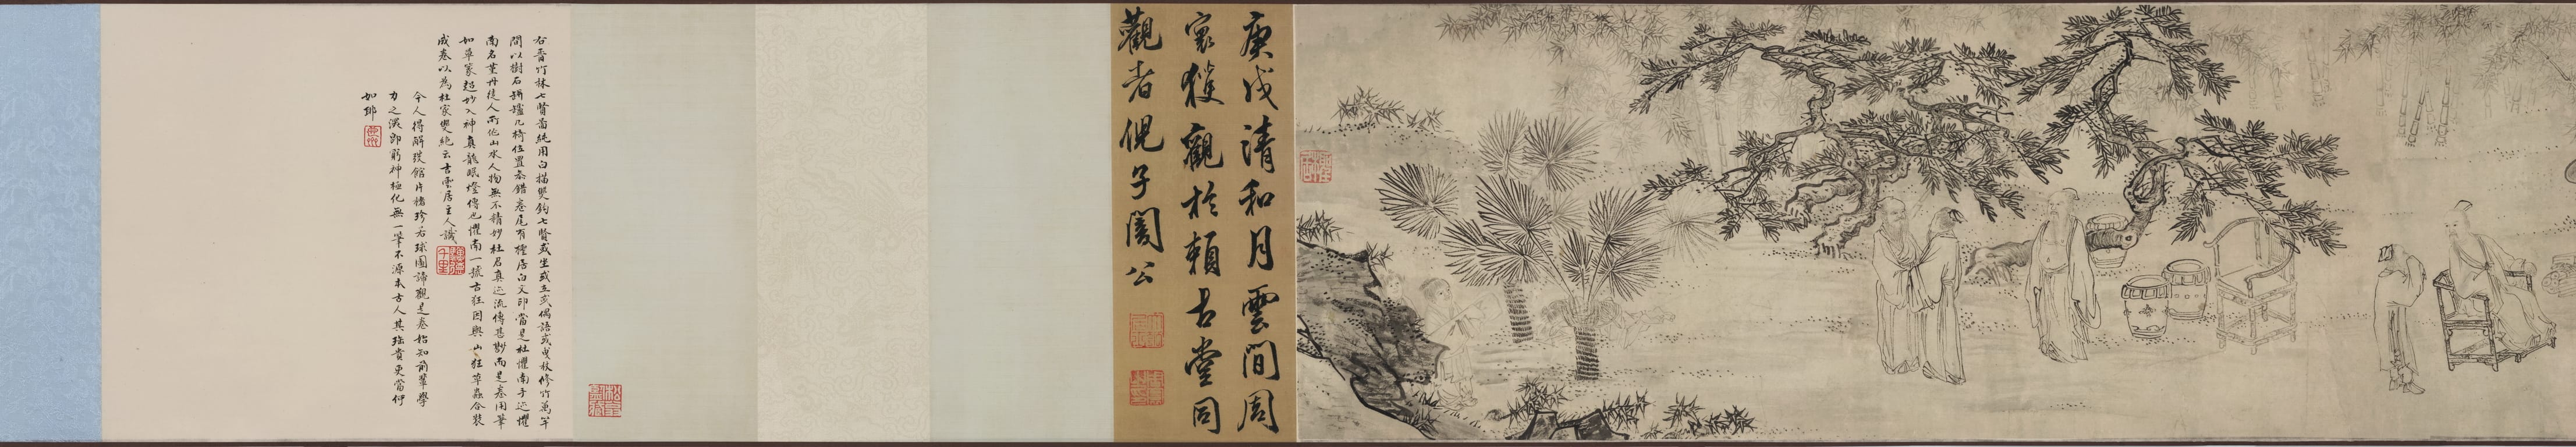 庚戌清和月雲間周
裳獲觀於賴古堂同
觀者倪子闇公
右晉竹林七賢圖純用白描雙鈎七賢或坐或立或偶語或曳杖修竹萬竿
間以樹石鉼罏几椅位置參錯卷尾有檉居白文印當是杜懼南手迹懼
南名堇丹徒人所作山水人物無不精妙杜君真迹流傳甚尠而是卷用筆
如草篆超妙入神真龍眠燈傳也懼南一號古狂因與山狂草蟲合裝
成卷以為杜家雙絕云古雲居主人識
今人得解弢館片楮珍若球圖諦觀是卷始知前輩學
力之深即窮神極化無一筆不源本古人其珍貴更當何
如耶